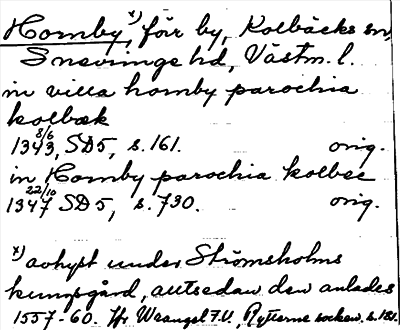 Hornby,ˣ⁾ för by, Kolbäcks sn,
Snevringe hd, Västm. l.
in villa hornby parochia
kolbæk
1343 8/6, SD5, s. 161. orig.
in Hornby parochia kolbec
1347 22/10 SD5, s. 730. orig.
ˣ⁾ avhyst under Strömsholms
kungsgård, sedan den anlades
1557-60. Wrangel F.U., Rytterne socken. s. 181.